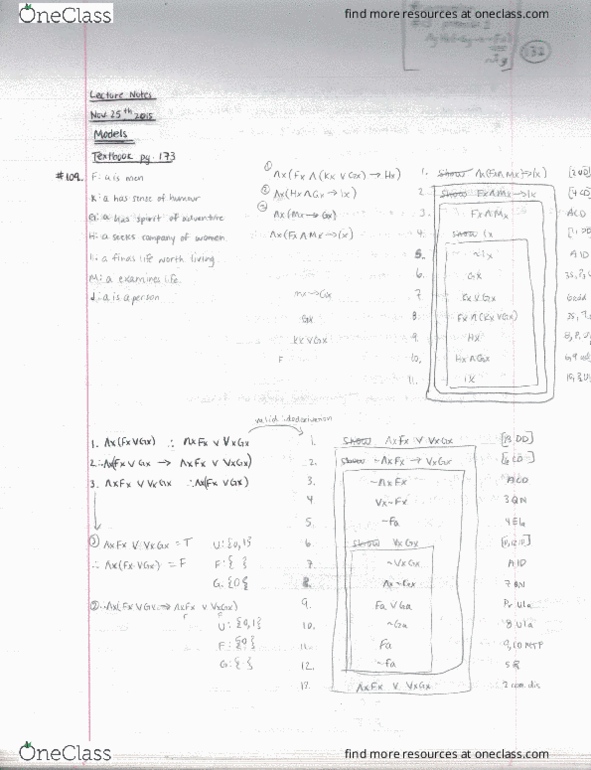 OneClass
find more resources at oneclass.com
132
Lecture Notes
Nov. 25th 2015
Models
Textbook pg. 173
#109. F: a is men
K: a has sense of humour
G: a has spirit of adventure
H: a seeks company of women
I: a finds life worth living.
M: a examines life.
J: a is a person
① Λx(Fx Λ (Kx ∨ Gx) → Hx)
② Λx(Hx Λ Gx → Ix)
③ Λx(Mx → Gx)
Λx(Fx Λ Mx → Ix)
Mx → Gx
Gx
Kx ∨ Gx
F
1. Show Λx(Fx Λ Mx → Ix)
2. Show Fx Λ Mx → Ix
3. Fx Λ Mx ACD
4. Show Ix
5. ~Ix AID
6. Gx
7. Kx ∨ Gx 6 add
8. Fx Λ (Kx ∨ Gx)
9. Hx
10. Hx Λ Gx
11. Ix
1. Λx(Fx ∨ Gx) ∴ ΛxFx ∨ VxGx
2. ∴ Λx(Fx ∨ Gx → ΛxFx ∨ VxGx)
3. ΛxFx ∨ VxGx ∴ Λx(Fx ∨ Gx)
③ ΛxFx ∨ VxGx = T U: {0,1}
∴ Λx(Fx ∨ Gx) = F F: { }
G: {0}
② ∴ Λx(Fx ∨ Gx → ΛxFx ∨ VxGx)
F F
U: {0,1}
F: {0}
G: { }
1. Show ΛxFx ∨ VxGx
2. Show ~ΛxFx → VxGx
3. ~ΛxFx ACD
4. Vx~Fx 3 QN
5. ~Fa 4 EI
6. Show VxGx
7. ~VxGx AID
8. Λx~Gx 7 QN
9. Fa ∨ Ga Pr UI a
10. ~Ga 8 UI a
11. Fa 9, 10 MTP
12. ~Fa 5 R
ΛxFx ∨ VxGx
OneClass
find more resources at oneclass.com